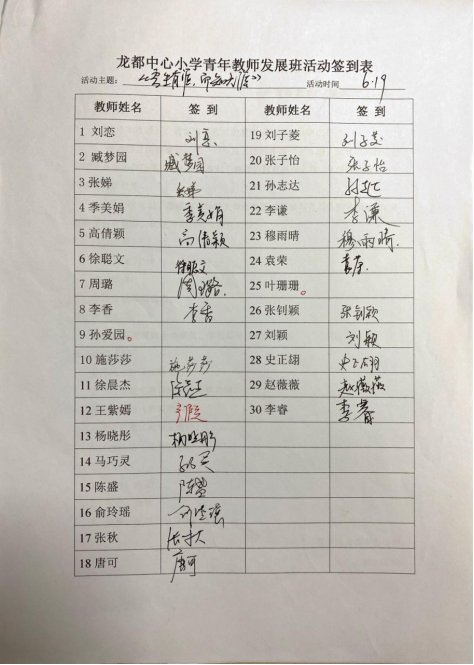 龙都中心小学青年教师发展班活动签到表
活动主题： 活动时间 6.19
教师姓名 签 到 教师姓名 签 到
1 刘恋 刘恋 19 刘子菱 刘子菱
2 臧梦园 臧梦园 20 张子怡 张子怡
3 张娣 张娣 21 孙志达 孙志达
4 季美娟 季美娟 22 李谦 李谦
5 高倩颖 高倩颖 23 穆雨晴 穆雨晴
6 徐聪文 徐聪文 24 袁荣 袁荣
7 周璐 周璐 25 叶珊珊
8 李香 李香 26 张钊颖 张钊颖
9 孙爱园 27 刘颖 刘颖
10 施莎莎 施莎莎 28 史正翃 史正翃
11 徐晨杰 29 赵薇薇 赵薇薇
12 王紫嫣 30 李睿 李睿
13 杨晓彤 杨晓彤
14 马巧灵 马巧灵
15 陈盛 陈盛
16 俞玲瑶 俞玲瑶
17 张秋 张秋
18 唐可 唐可